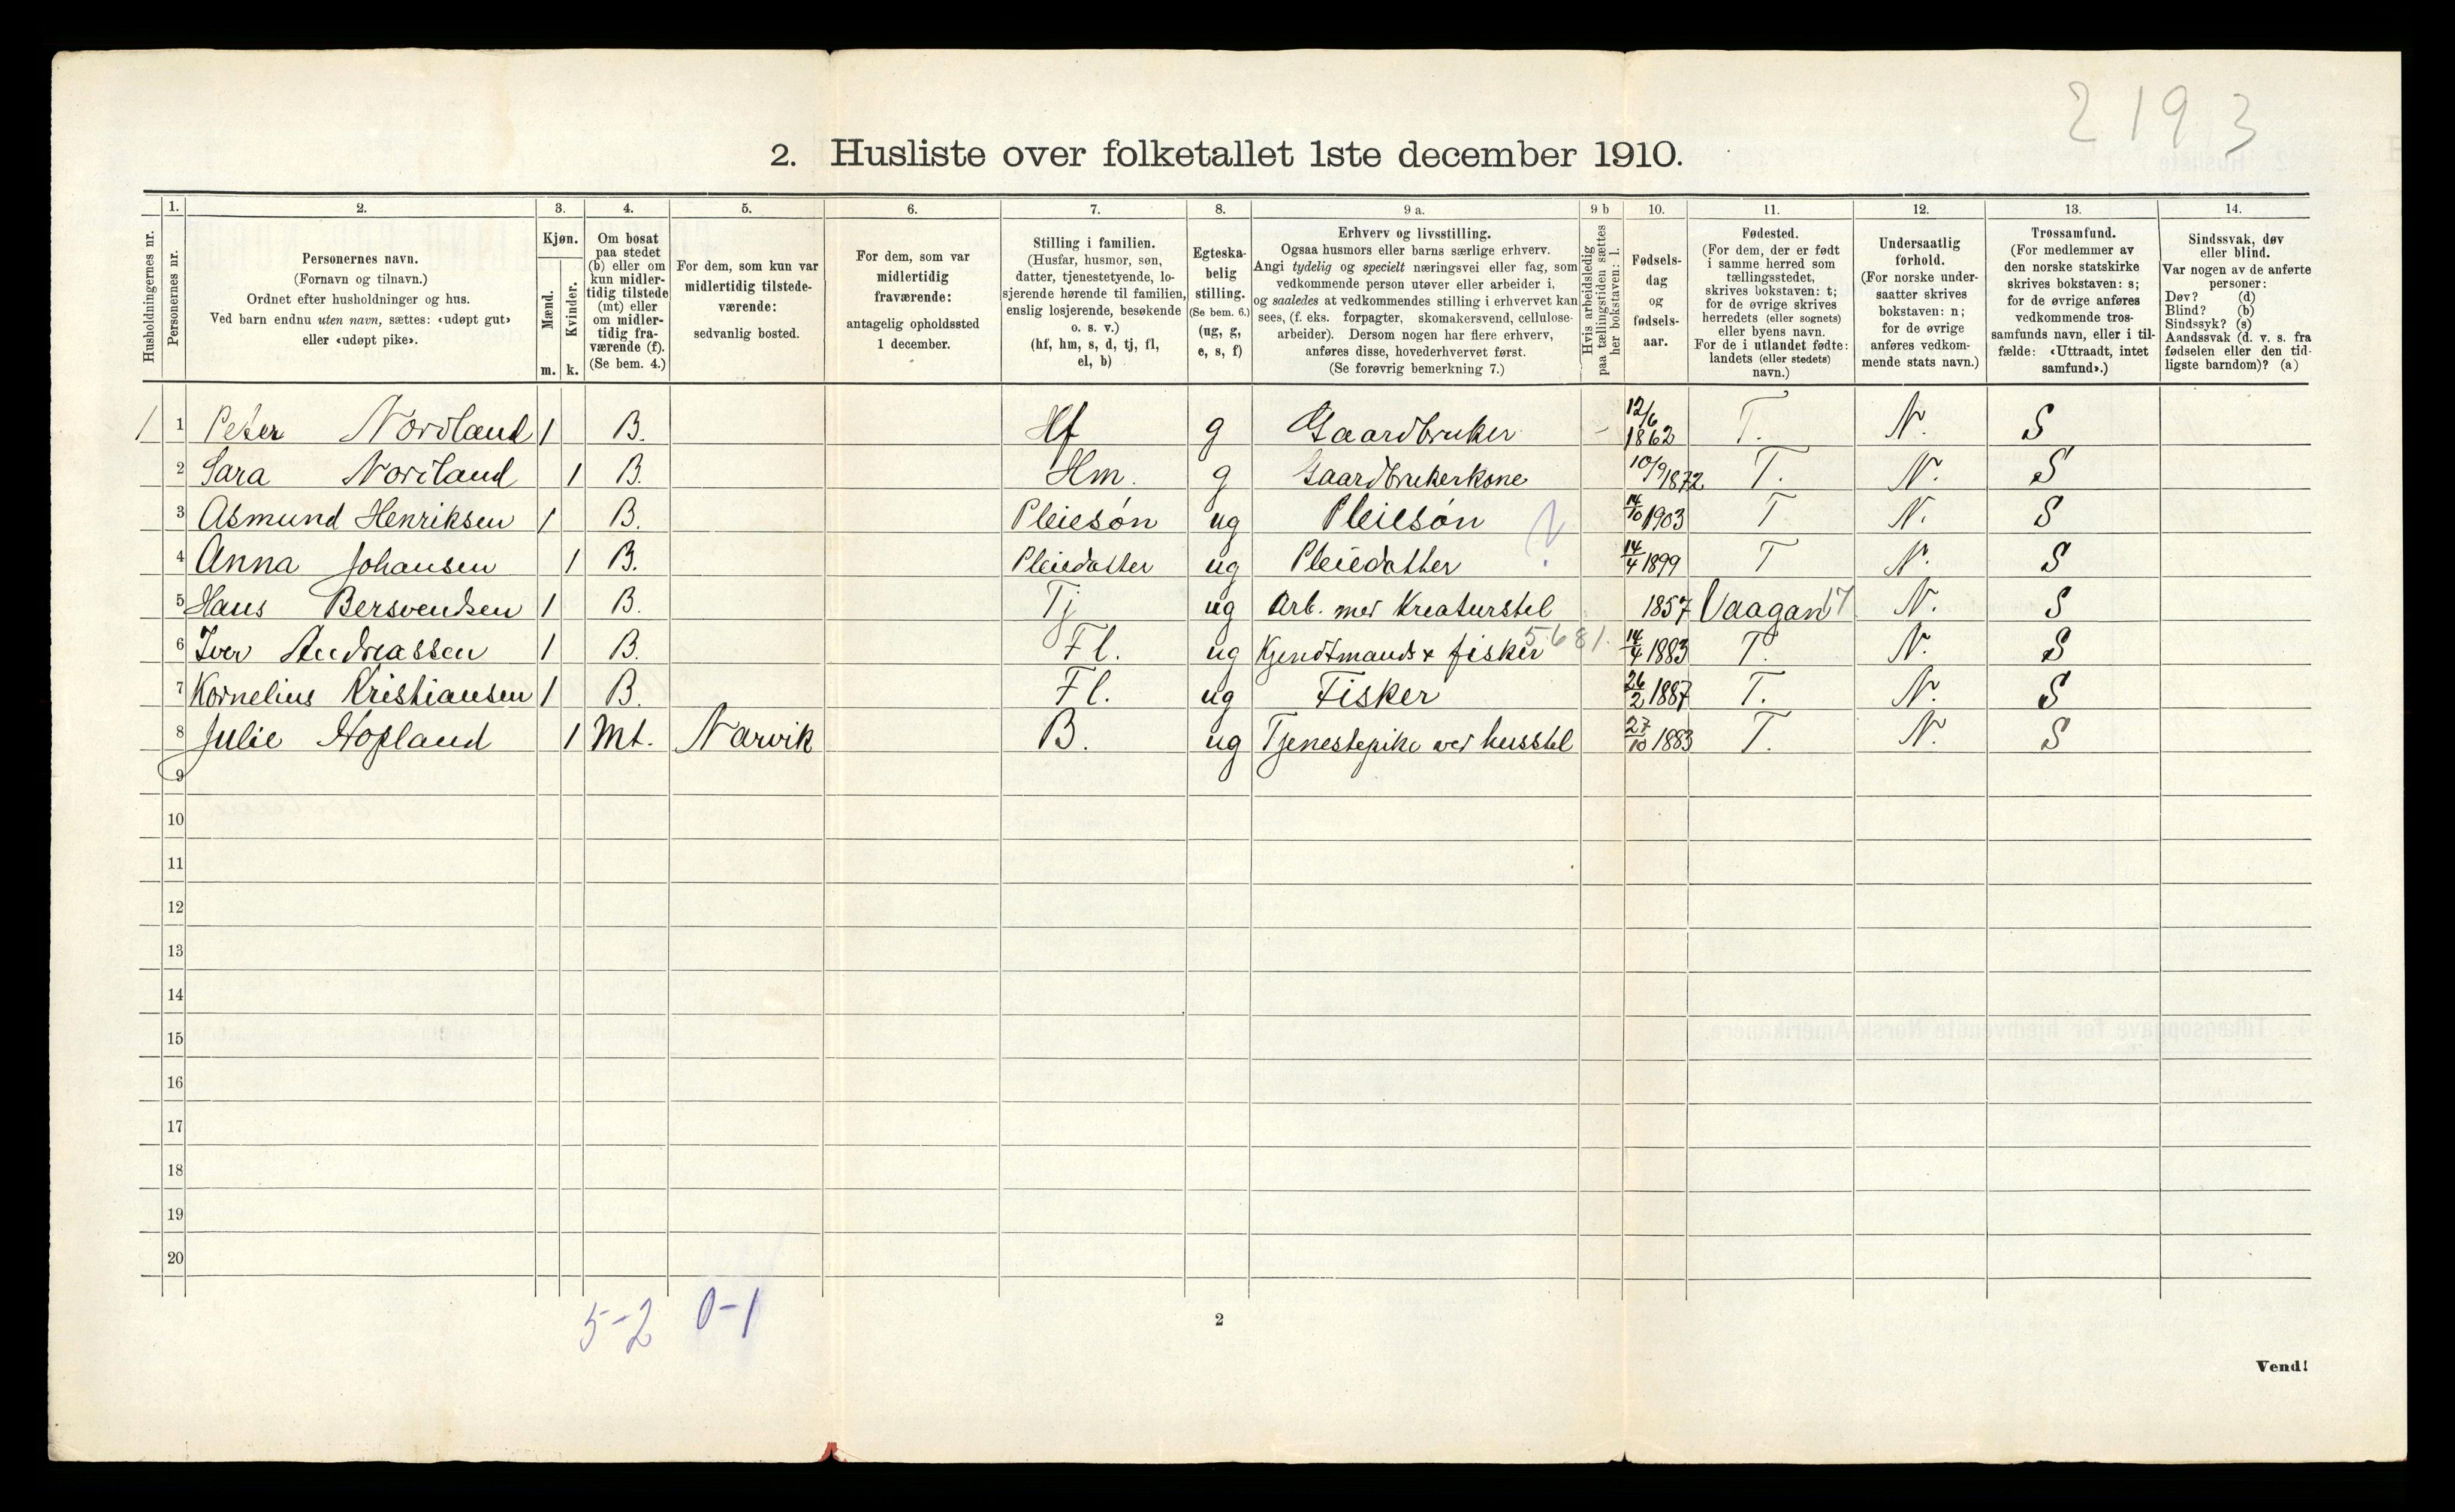 2193
2. Husliste over folketallet 1ste december 1910.
Husholdningernes nr.
1. Personernes nr.
2. Personernes navn. (Fornavn og tilnavn.) Ordnet efter husholdninger og hus. Ved barn endnu uten navn, sættes: «udøpt gut» eller «udøpt pike».
3. Kjøn. Mænd. m. Kvinder. k.
4. Om bosat paa stedet (b) eller om kun midlertidig tilstede (mt) eller om midlertidig fraværende (f). (Se bem. 4.)
5. For dem, som kun var midlertidig tilstedeværende: sedvanlig bosted.
6. For dem, som var midlertidig fraværende: antagelig opholdssted 1 december.
7. Stilling i familien. (Husfar, husmor, søn, datter, tjenestetyende, losjerende hørende til familien, enslig losjerende, besøkende o. s. v.) (hf, hm, s, d, tj, fl, el, b)
8. Egteskabelig stilling. (Se bem. 6.) (ug, g, e, s, f)
9 a. Erhverv og livsstilling. Ogsaa husmors eller barns særlige erhverv. Angi tydelig og specielt næringsvei eller fag, som vedkommende person utøver eller arbeider i, og saaledes at vedkommendes stilling i erhvervet kan sees, (f. eks. forpagter, skomakersvend, cellulosearbeider). Dersom nogen har flere erhverv, anføres disse, hovederhvervet først. (Se forøvrig bemerkning 7.)
9 b Hvis arbeidsledig paa tællingstiden sættes her bokstaven: l.
10. Fødselsdag og fødselsaar.
11. Fødested. (For dem, der er født i samme herred som tællingsstedet, skrives bokstaven: t; for de øvrige skrives herredets (eller sognets) eller byens navn. For de i utlandet fødte: landets (eller stedets) navn.)
12. Undersaatlig forhold. (For norske undersaatter skrives bokstaven: n; for de øvrige anføres vedkommende stats navn.)
13. Trossamfund. (For medlemmer av den norske statskirke skrives bokstaven: s; for de øvrige anføres vedkommende trossamfunds navn, eller i tilfælde: «Uttraadt, intet samfund».)
14. Sindssvak, døv eller blind. Var nogen av de anførte personer: Døv? (d) Blind? (b) Sindssyk? (s) Aandssvak (d. v. s. fra fødselen eller den tidligste barndom)? (a)
1 1 Peter Nordland 1 B. Hf g Gaardbruker - 12/6 1862 T. N. S
2 Sara Nordland 1 B. Hm. g Gaardbrukerkone 10/9 1872 T. N. S
3 Asmund Henriksen 1 B. Pleiesøn ug Pleiesøn 14/10 1903 T N. S
4 Anna Johansen 1 B. Pleiedatter ug Pleiedatter ? 14/4 1899 T N. S
5 Hans Bersvendsen 1 B. Tj ug Arb. med Kreaturstel 1857 Vaagan 17 N. S
6 Iver Andreassen 1 B. Fl. ug Kjendtmands + fisker 5681. 14/4 1883 T. N. S
7 Kornelius Kristiansen 1 B. Fl. ug Fisker 26/2 1887 T. N. S
8 Julie Hopland 1 Mt. Narvik B. ug Tjenestepike ved husstel 27/10 1883 T. N. S
9
10
11
12
13
14
15
16
17
18
19
20
5-2 0-1
2
Vend!